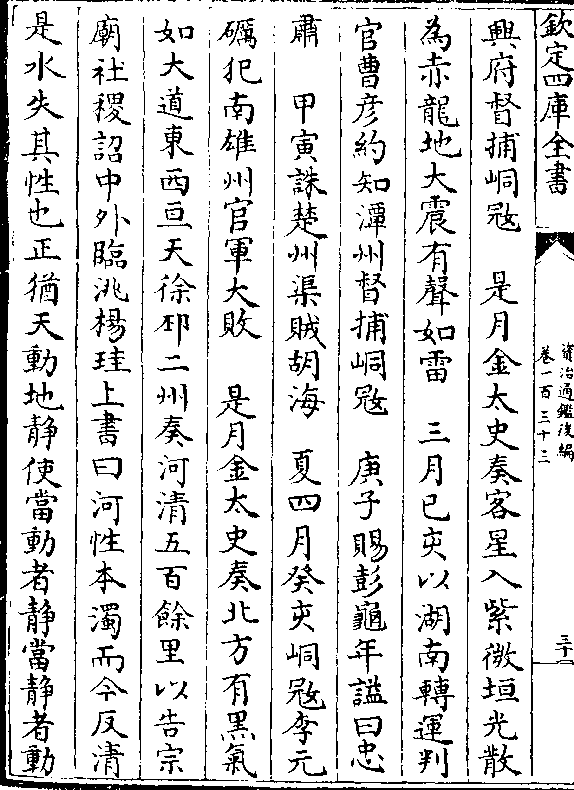 欽定四庫全書
資治通鑑後編
卷一百三十三
三十一
興府督捕峒㓂　是月金太史奏客星入紫微垣光散
為赤龍地大震有聲如雷　三月已亥以湖南轉運判
官曹彥約知潭州督捕峒㓂　庚子賜彭龜年諡曰忠
肅　甲寅誅楚州渠賊胡海　夏四月癸亥峒㓂李元
礪犯南雄州官軍大敗　是月金太史奏北方有黑氣
如大道東西亘天徐邳二州奏河清五百餘里以告宗
廟社稷詔中外臨洮楊珪上書曰河性本濁而今反清
是水失其性也正猶天動地静使當動者静當静者動